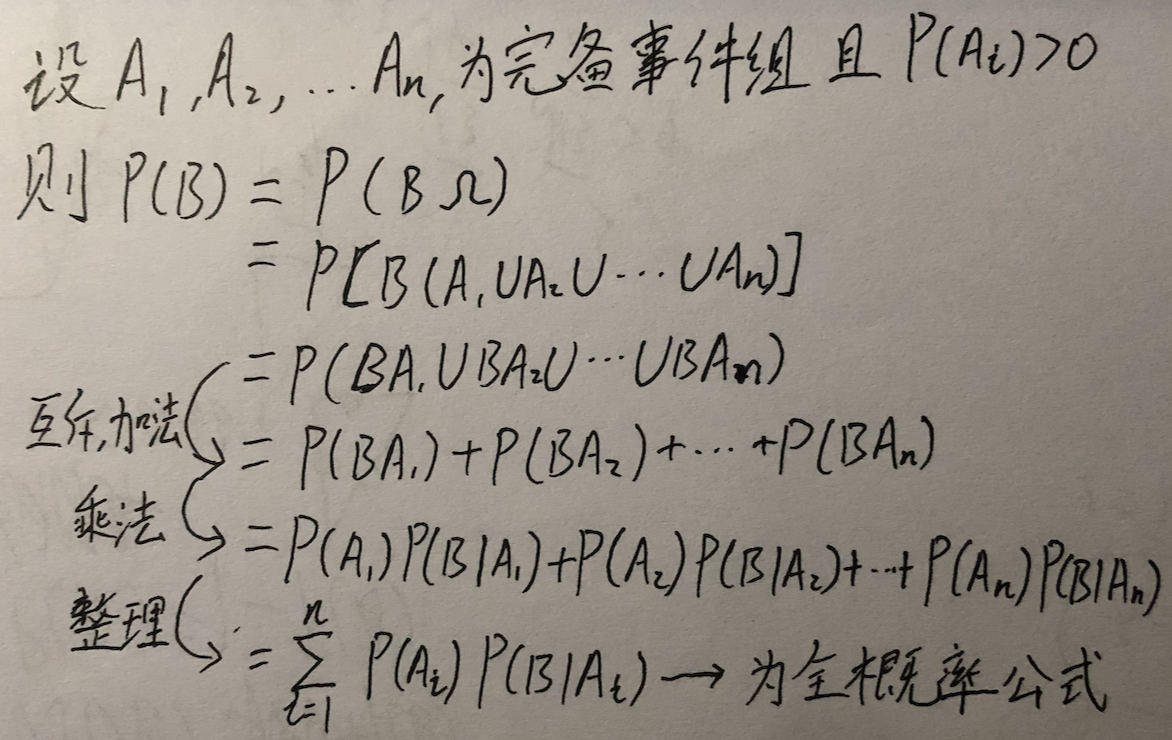 设 A₁,A₂,…An,为完备事件组 且 P(Ai)>0
则 P(B) = P(BΩ)
= P[B(A₁∪A₂∪…∪An)]
= P(BA₁∪BA₂∪…∪BAn)
互斥,加法 = P(BA₁)+P(BA₂)+…+P(BAn)
乘法 = P(A₁)P(B|A₁)+P(A₂)P(B|A₂)+…+P(An)P(B|An)
整理 = ∑ⁿᵢ₌₁ P(Ai)P(B|Ai) → 为全概率公式